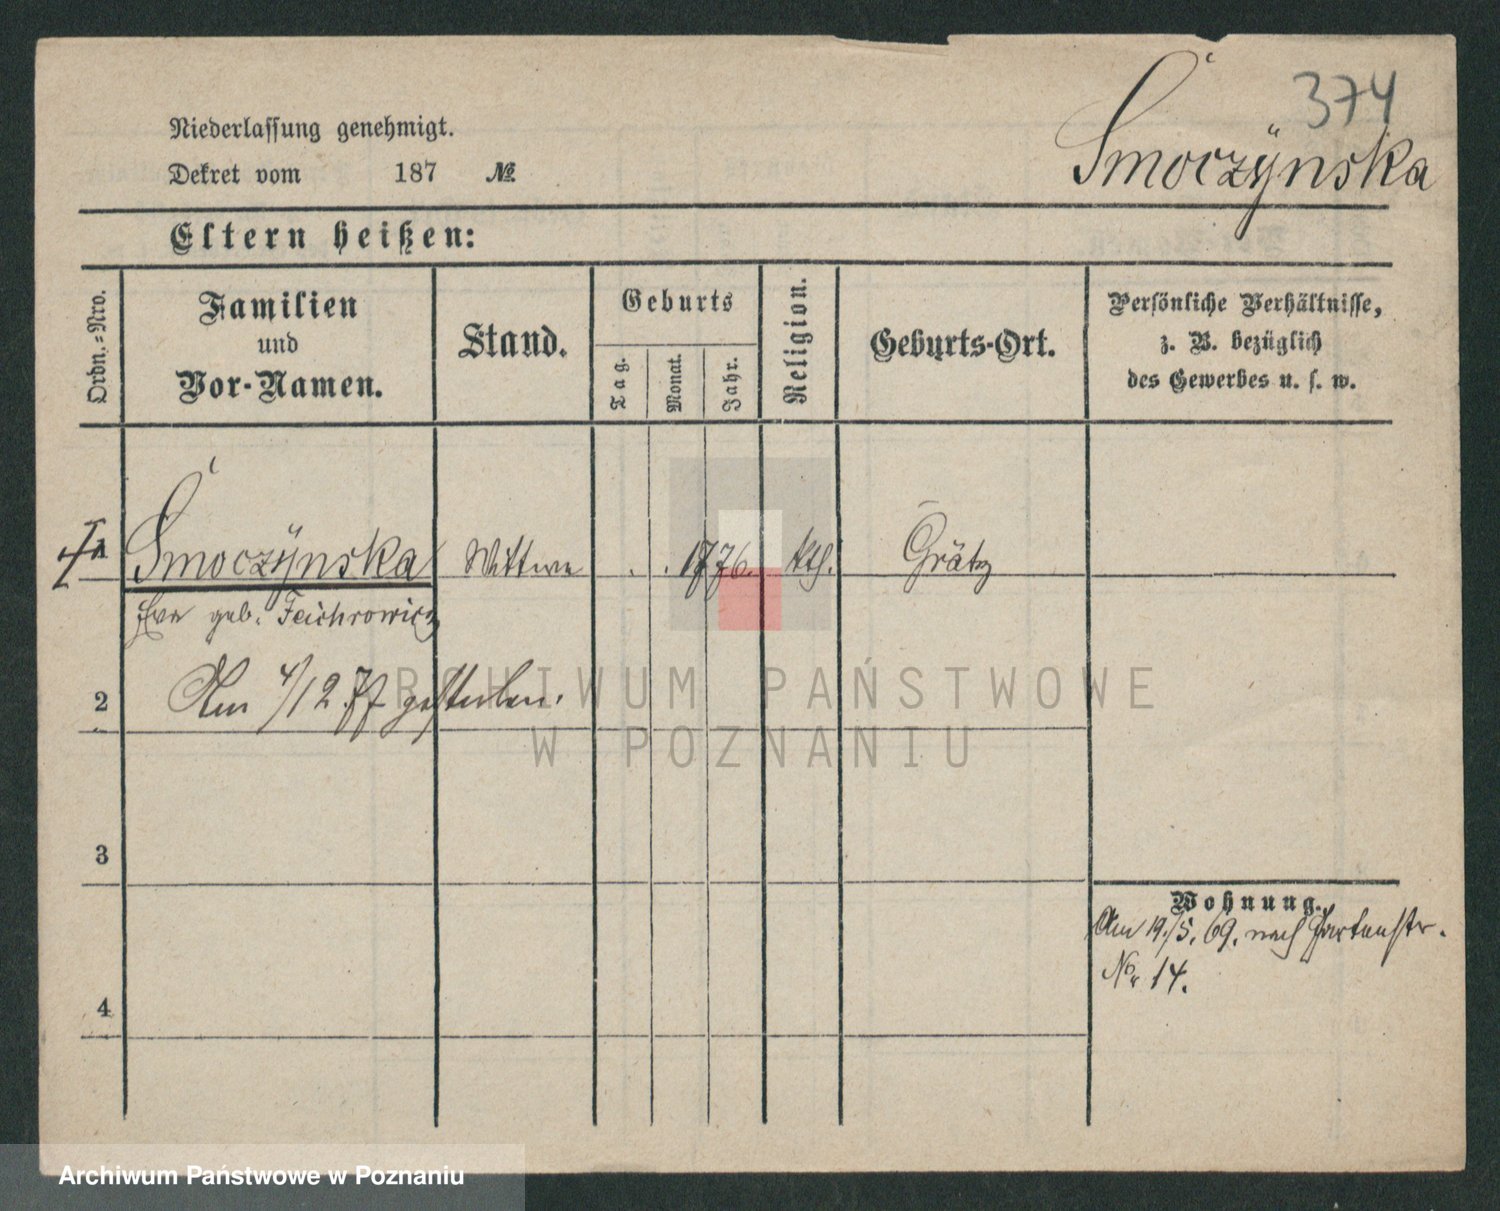 374
Smoczÿnska
Niederlassung genehmigt.
Dekret vom 187 №
Eltern heißen:
Ordn.-Nro.
Familien
und
Vor-Namen.
Stand.
Geburts
Tag.
Monat.
Jahr.
Religion.
Geburts-Ort.
Persönliche Verhältnisse,
z. B. bezüglich
des Gewerbes u. s. w.
1 Smoczÿnska Wittwe . . 1776. kth. Grätz
Eva geb.
2 Am 4/12 77 gestorben.
3
4
Wohnung.
Am 19./5. 69. nach Gartenstr.
No. 14.
ARCHIWUM PAŃSTWOWE
W POZNANIU
Archiwum Państwowe w Poznaniu